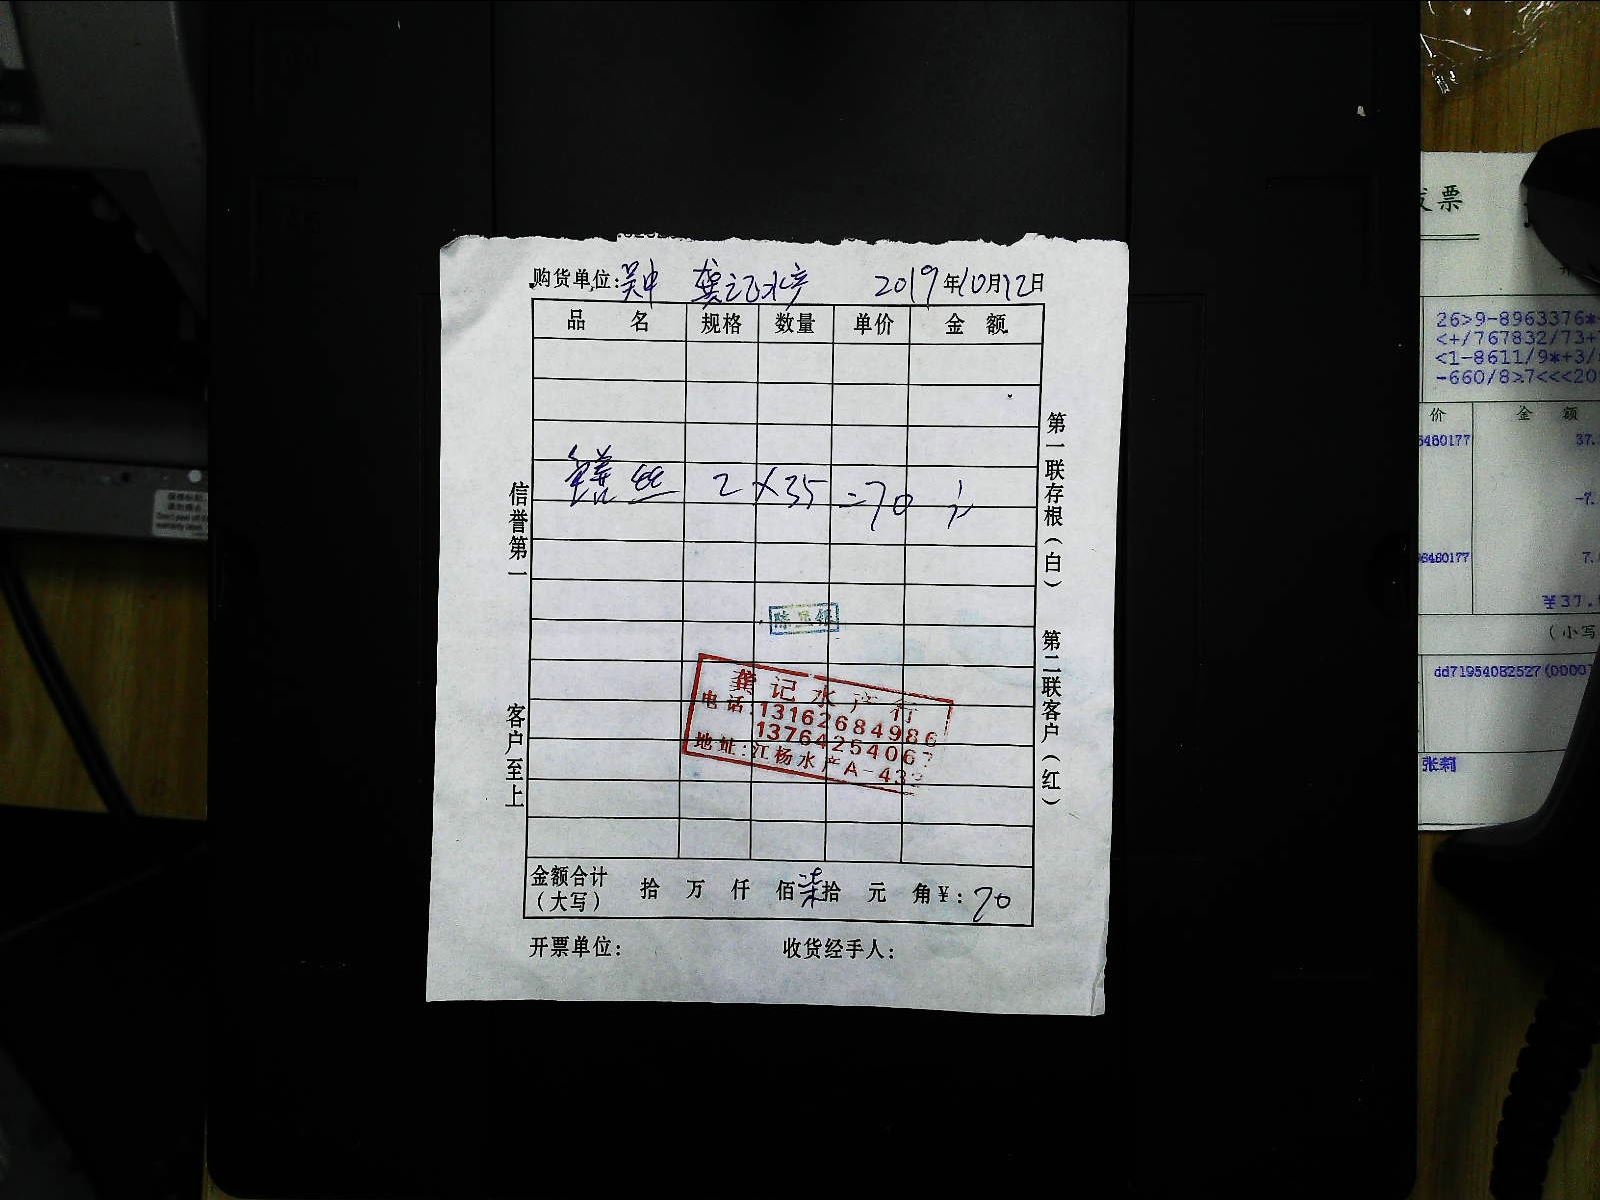 购货单位:吴中 龚记水产 2019年10月12日
品 名 规格 数量 单价 金 额
鳝丝 2×35=70元
陈显银
龚记水产行
电话:13162684986
13764254067
地址:江杨水产A-43
金额合计(大写) 拾 万 仟 佰柒拾 元 角¥:70
开票单位: 收货经手人:
信誉第一 客户至上
第一联存根(白) 第二联客户(红)
发票
26>9-8963376*
<+/767832/73+
<1-8611/9*+3/
-660/8>7<<<20
价 金 额
6480177 37.
-7.
6480177 7.
¥37.
(小写
dd71954082527(0000
张莉